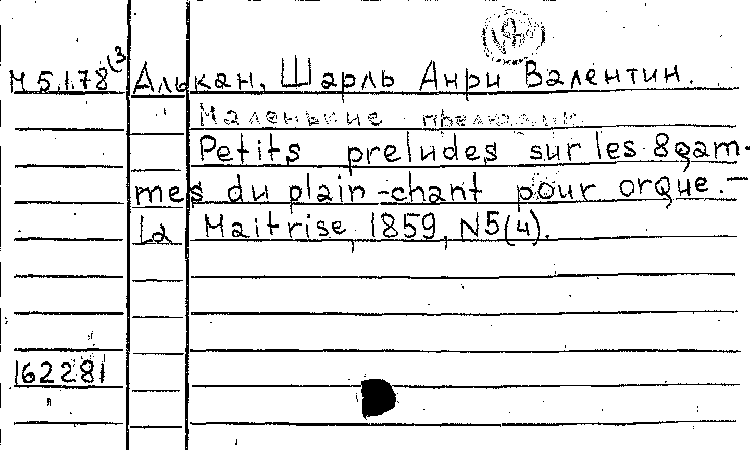 М 5.1.78(3 Алькан, Шарль Анри Валентин.
Маленькие прелюдии
Petits preludes sur les 8gam-
mes du plain-chant pour orgue.-
La Maitrise, 1859, N5(4).
162281